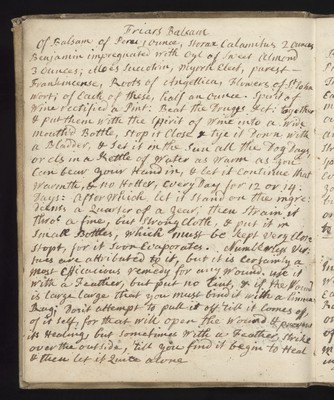 Friars Balsam
Of Balsam of Peru 1 ounce, Storax Calamitus 2 ounces
Benjamin impregnated with Oyl of Sweet Almond
3 ounces; Aloes Succotrin, Myrrh Elect, purest
Frankincense, Roots of Angellica, Flowers of St John
wort, of each of these, half an ounce. Spirit of
Wine rectified a Pint: Beat the Drugs &c: together
& put them with the Spirit of Wine into a Wide
mouthed Bottle, stop it Close & Tye it Down with
a Bladder, & Set it in the Sun all the Dog Days
or els in a Kettle of Water as Warm as you
Can bear your Hand in, & let it Continue that
Warmth, & no Hotter, Every Day for 12 or 14:
Days: After Which let it Stand on the ingre:
:dients a Quarter of a Year: then Strain it
thro' a fine, but Strong Cloth, & put it in
Small Bottles, Which must be kept very Close
Stopt, for it Soon Evaporates. Numberless Vir
tues are attributed to it, but it is Certainly a
most Efficacious remedy for any Wound. use it
With a Feather, but put no Lint, & if the Wound
is large large that you must bind it with a Linnen
Rag; Don't attempt to pull it off till it Comes of
of it Self, for that will open the Wound & prevent
its Healing, but Sometimes With a Feather, Strike
over the outside, till you find it begin to Heal
& then let it Quite alone